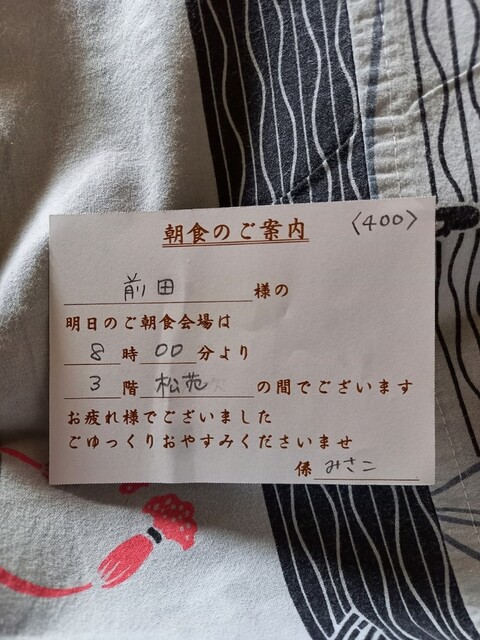 朝食のご案内 〈400〉
前田様の
明日のご朝食会場は
8時00分より
3階松苑の間でございます
お疲れ様でございました
ごゆっくりおやすみくださいませ
係 みさこ